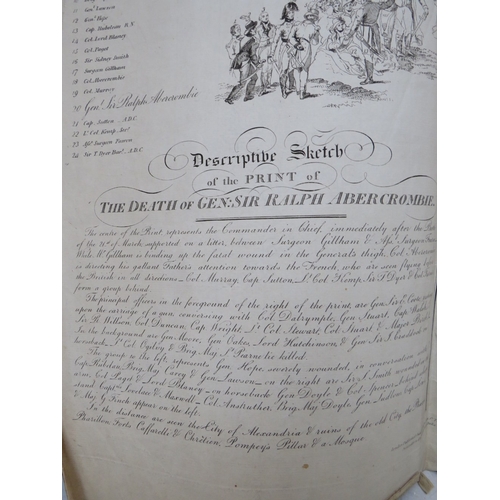 11 Genl. Lawson
12 Genl. Hope
13 Cap. R.N.
14 Col. Lord Blaney
15 Col. Paget
16 Sir Sidney Smith
17 Surgeon Gillham
18 Col. Abercrombie
19 Col. Murray
20 Genl. Sir Ralph Abercrombie
21 Cap. Sutton A.D.C.
22 Lt. Col. Kemp
23 Surgeon
24 Sir T. Dyer A.D.C.
Descriptive Sketch
of the PRINT of
THE DEATH OF GEN: SIR RALPH ABERCROMBIE.
The centre of the Print represents the Commander in Chief, immediately after the
of the of March supported on a litter, between Surgeon Gillham & Surgeon
Gillham is binding up the fatal wound in the General's thigh, Col. Abercrombie
is directing his gallant Father's attention towards the French, who are seen flying
the British in all directions _ Col. Murray, Cap. Sutton, Lt. Col. Kemp, Sir T. Dyer &
from a group behind.
The principal officers in the foreground of the right of the print, are Gen. Sir
upon the carriage of a gun, conversing with Col. Dalrymple, Gen. Stuart, Cap.
Sir R. Wilson, Col. Duncan, Cap. Wright, Lt. Col. Stewart, Col. Stuart & Major
In the background are Gen. Moore, Gen. Oakes, Lord Hutchinson, & Gen. Sir
horseback _ Lt. Col. Ogilvy & Brig. Maj. killed.
The group to the left, represents Gen. Hope, severely wounded, in conversation with
Cap. Brig. Maj. & Gen. Lawson _ on the right are Sir S. Smith wounded in
arm, Col. Paget & Lord Blaney _ on horseback Gen. Doyle & Col. Spencer,
stand Capts. & Maxwell _ Col. Anstruther, Brig. Maj. Doyle, Gen. Ludlow,
& Maj. G. Finch appear on the left.
In the distance are seen the City of Alexandria & ruins of the old City, the
Pharillon, Forts Caffarelli & Chrétien, Pompey's Pillar & a Mosque.